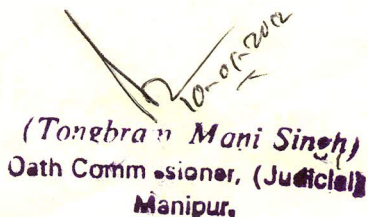 10-01-2012
(Tongbra n Mani Singh)
Oath Comm ssioner, (Judicial)
Manipur.